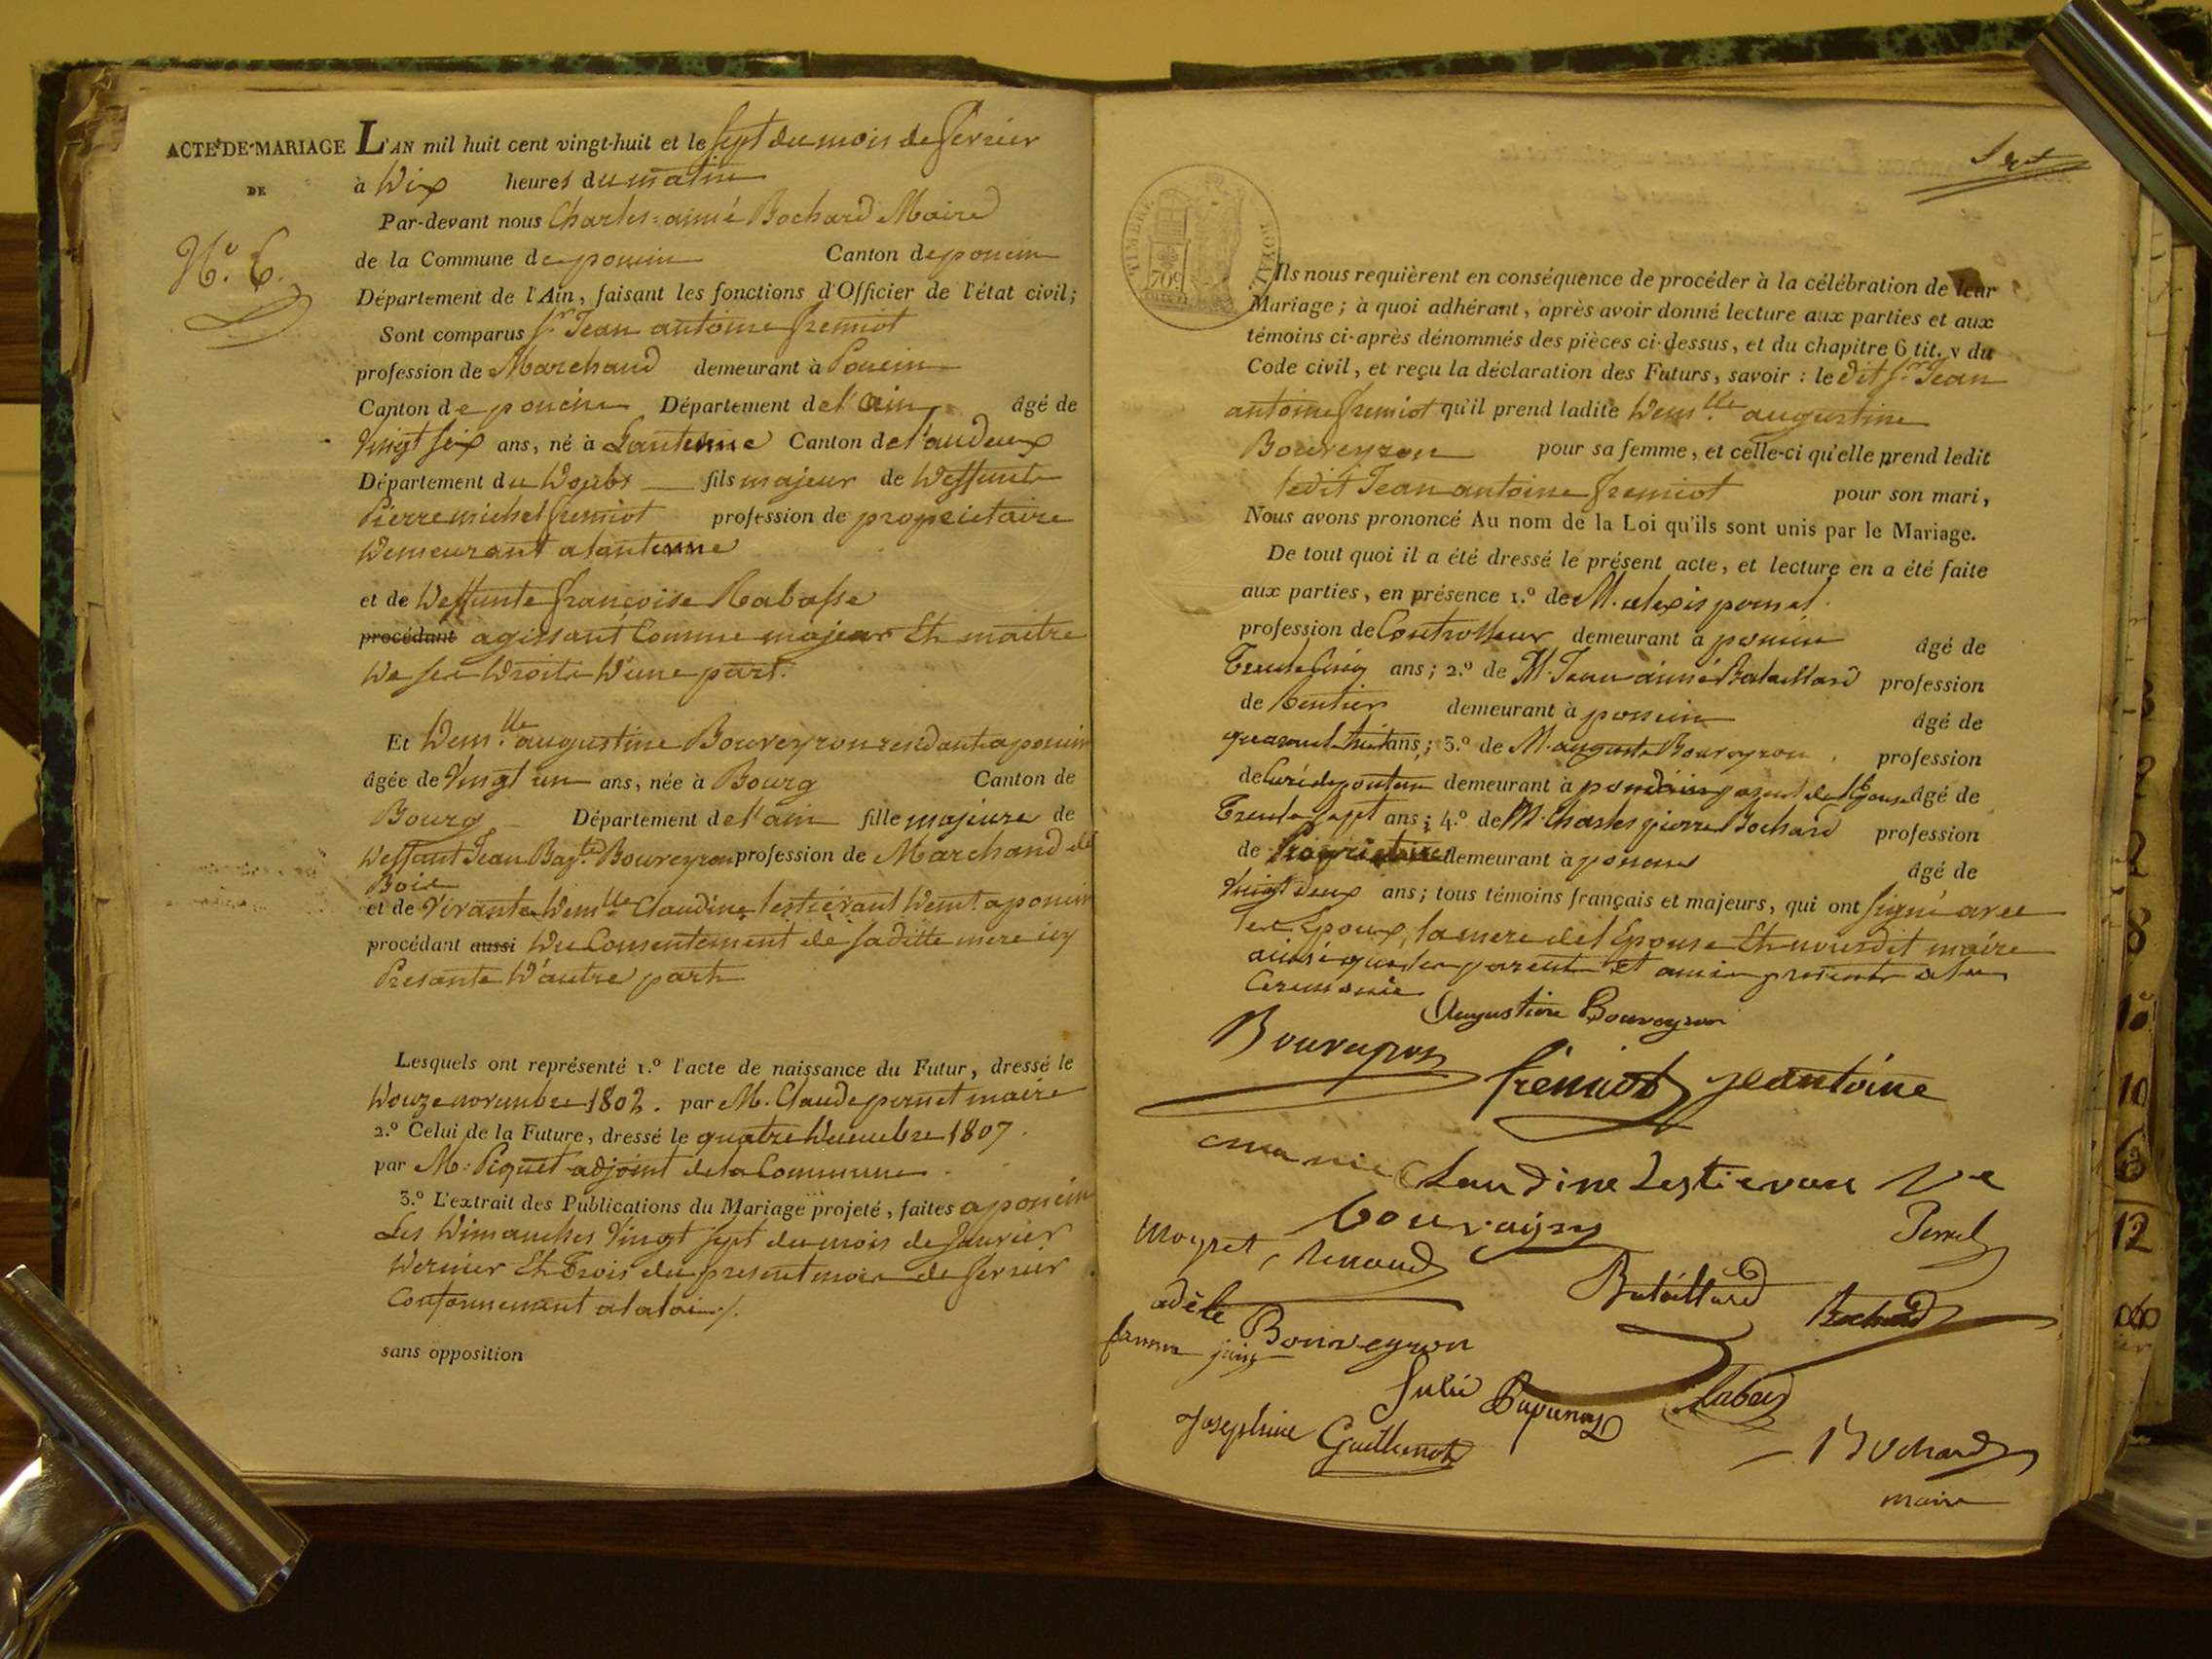 ACTE DE MARIAGE
DE
N.º 6.
L'AN mil huit cent vingt-huit et le sept du mois de fevrier
à Dix heures du matin
Par-devant nous Charles-aimé Bochard Maire
de la Commune de poncin Canton de poncin
Département de l'Ain, faisant les fonctions d'Officier de l'état civil;
Sont comparus s.r Jean antoine fremiot
profession de Marchand demeurant à Poncin
Canton de poncin Département de l'ain âgé de
Vingt six ans, né à Lantenne Canton de l'audeux
Département du Doubs fils majeur de Deffunt
Pierre michel fremiot profession de propriétaire
Demeurant a lantenne
et de Deffunte françoise Rabasse
procédant agissant Comme majeur Et maitre
De ses Droits D'une part.
Et Dem.lle augustine Bouveyron residant a poncin
âgée de Vingt un ans, née à Bourg Canton de
Bourg Département de l'ain fille majeure de
Deffunt Jean Bap.te Bouveyron profession de Marchand de
Bois
et de Vivante Dem.lle Claudine lestievant Dem.t a poncin
procédant aussi Du Consentement de saditte mere icy
Presante D'autre part
Lesquels ont représenté 1.º l'acte de naissance du Futur, dressé le
Douze novembre 1802. par M. Claude pernet maire
2.º Celui de la Future, dressé le quatre Decembre 1807.
par M. Piquet adjoint de la Commune.
3.º L'extrait des Publications du Mariage projeté, faites a poncin
Les Dimanches Vingt sept du mois de Janvier
Dernier Et Trois du present mois de fevrier
Conformement a la loi ./.
sans opposition
TIMBRE ROYAL
Ils nous requièrent en conséquence de procéder à la célébration de leur
Mariage; à quoi adhérant, après avoir donné lecture aux parties et aux
témoins ci-après dénommés des pièces ci-dessus, et du chapitre 6 tit. v du
Code civil, et reçu la déclaration des Futurs, savoir : le dit s.r Jean
antoine fremiot qu'il prend ladite Dem.lle augustine
Bouveyron pour sa femme, et celle-ci qu'elle prend ledit
ledit Jean antoine fremiot pour son mari,
Nous avons prononcé Au nom de la Loi qu'ils sont unis par le Mariage.
De tout quoi il a été dressé le présent acte, et lecture en a été faite
aux parties, en présence 1.º de M. alexis
profession de Controlleur demeurant à poncin âgé de
Trente Cinq ans; 2.º de M. Jean aimé Bataillard profession
de Rentier demeurant à poncin âgé de
quarante huit ans; 3.º de M. auguste Bouveyron profession
de Curé de demeurant à parent de l'Epouse âgé de
Trente sept ans; 4.º de M. Charles pierre Bochard profession
de Propriétaire demeurant à poncin âgé de
Vingt deux ans; tous témoins français et majeurs, qui ont signé avec
les Epoux, la mere de l'Epouse Et nousdit maire
ainsi que les parents Et amis presents a la
Ceremonie
Augustine Bouveyron
Bouveyron
fremiot jeantoine
Claudine Lestievant Ve
bouveyron
Moyret
Renaud
adèle Bouveyron
Bataillard
Bochard
Julie
Josephine Guillemot
Bochard
maire